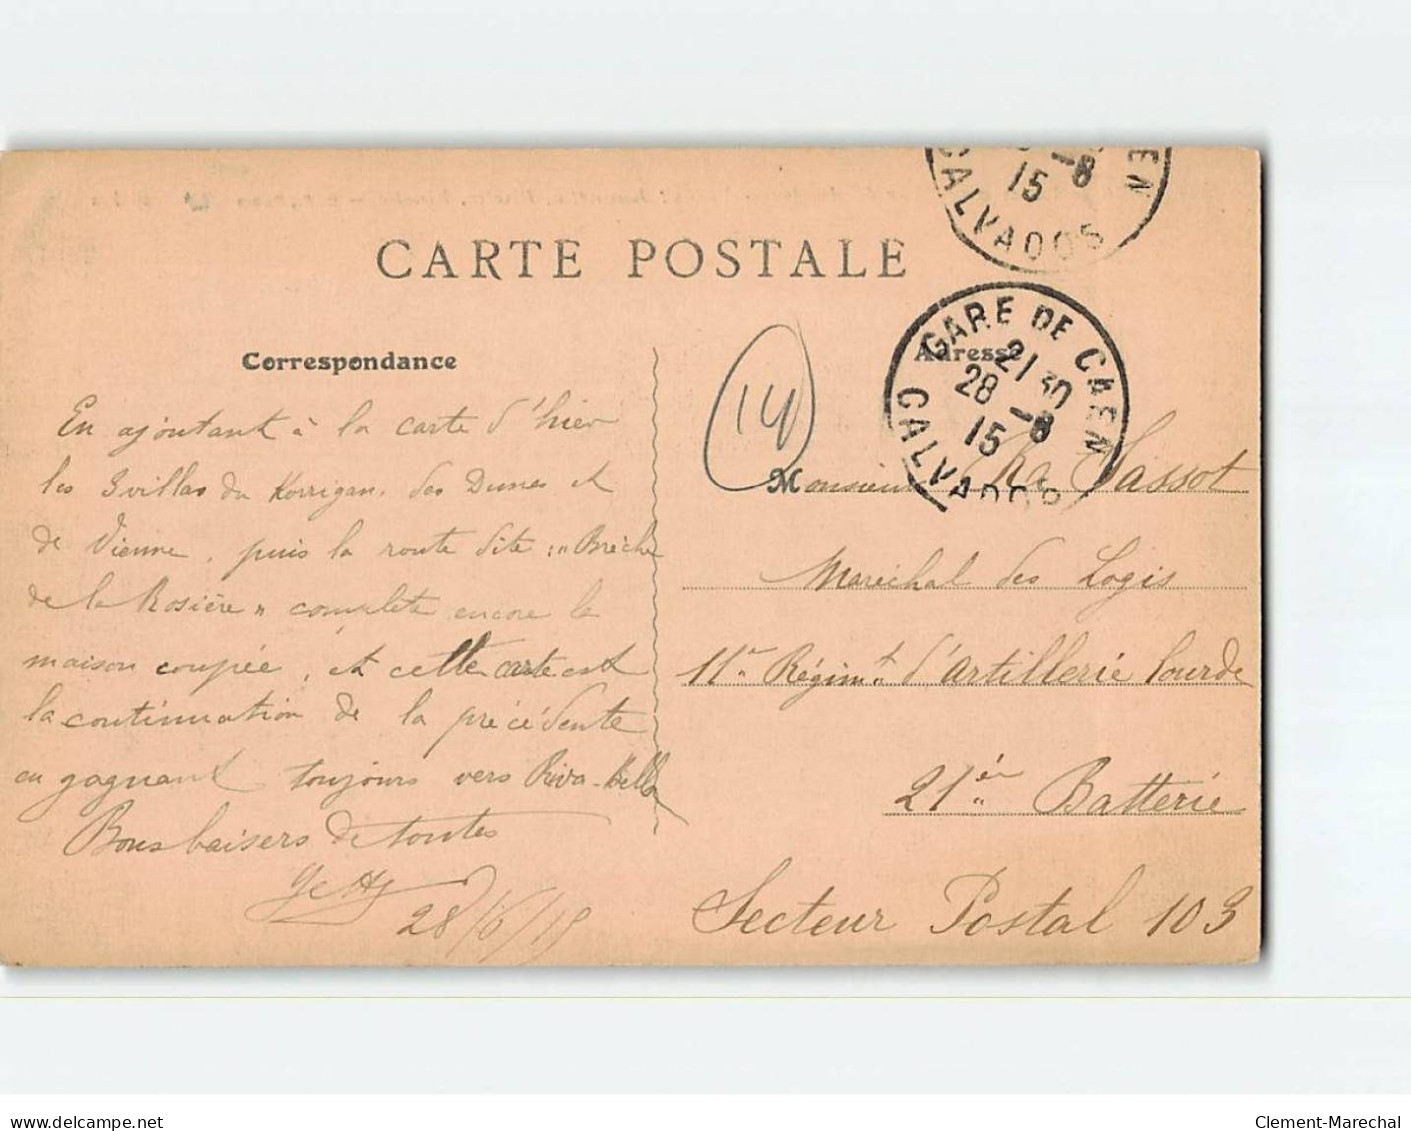 CARTE POSTALE
EN
-8
15
CALVADOS
Correspondance
Adresse
GARE DE CAEN
21 30
28 -8
15
CALVADOS
14
En ajoutant à la carte d'hier
les 3 villas du Korrigan, des Dunes et
de Vienne, puis la route dite : "Brèche
de la Rosière" complète encore la
maison coupée, et cette carte est
la continuation de la précédente
en gagnant toujours vers Riva-Bella
Bons baisers de toutes
28/6/15
Monsieur Sassot
Maréchal des Logis
11e Régimt d'Artillerie Lourde
21ée Batterie
Secteur Postal 103
www.delcampe.net
Clement-Marechal